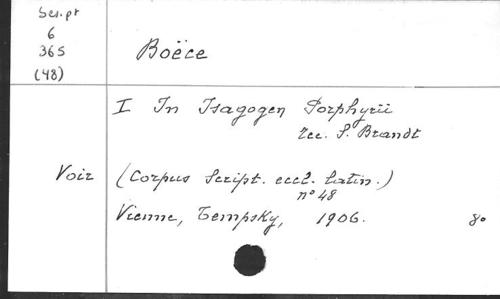 Script
6
365
(48)
Boëce
I In Isagogen Porphyrii
rec. S. Brandt
Voir (Corpus Script. eccl. latin.)
n° 48
Vienne, Tempsky, 1906. 8°